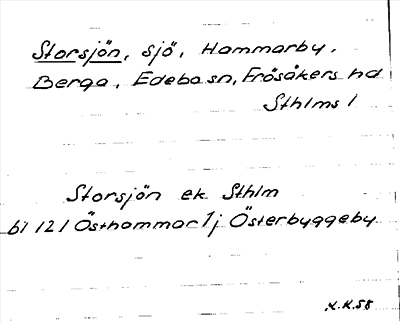 Storsjön, sjö, Hammarby,
Berga, Edebo sn, Frösåkers hd
Sthlms l
Storsjön ek Sthlm
bl 121 Östhammar 1j Österbyggeby
K.K.58